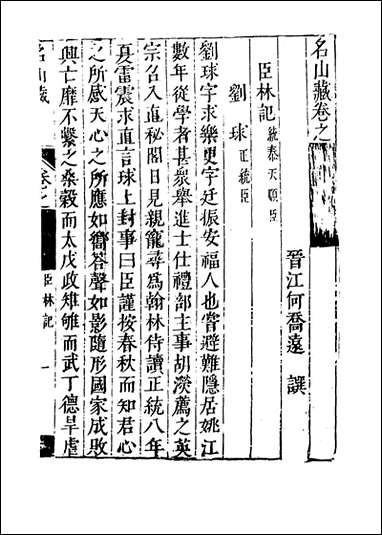 名山藏卷之
晉江何喬遠 譔
臣林記 統泰天順臣
劉球 正統臣
劉球字求樂更字廷振安福人也嘗避難隱居姚江
數年從學者甚衆舉進士仕禮部主事胡濙薦之英
宗召入直秘閣日見親寵尋爲翰林侍讀正統八年
夏雷震求直言球上封事曰臣謹按春秋而知君心
之所感天心之所應如嚮荅聲如影隨形國家成敗
興亡靡不繫之桑榖而太戊政雉雊而武丁德旱虐
名山藏
卷之
臣林記
一